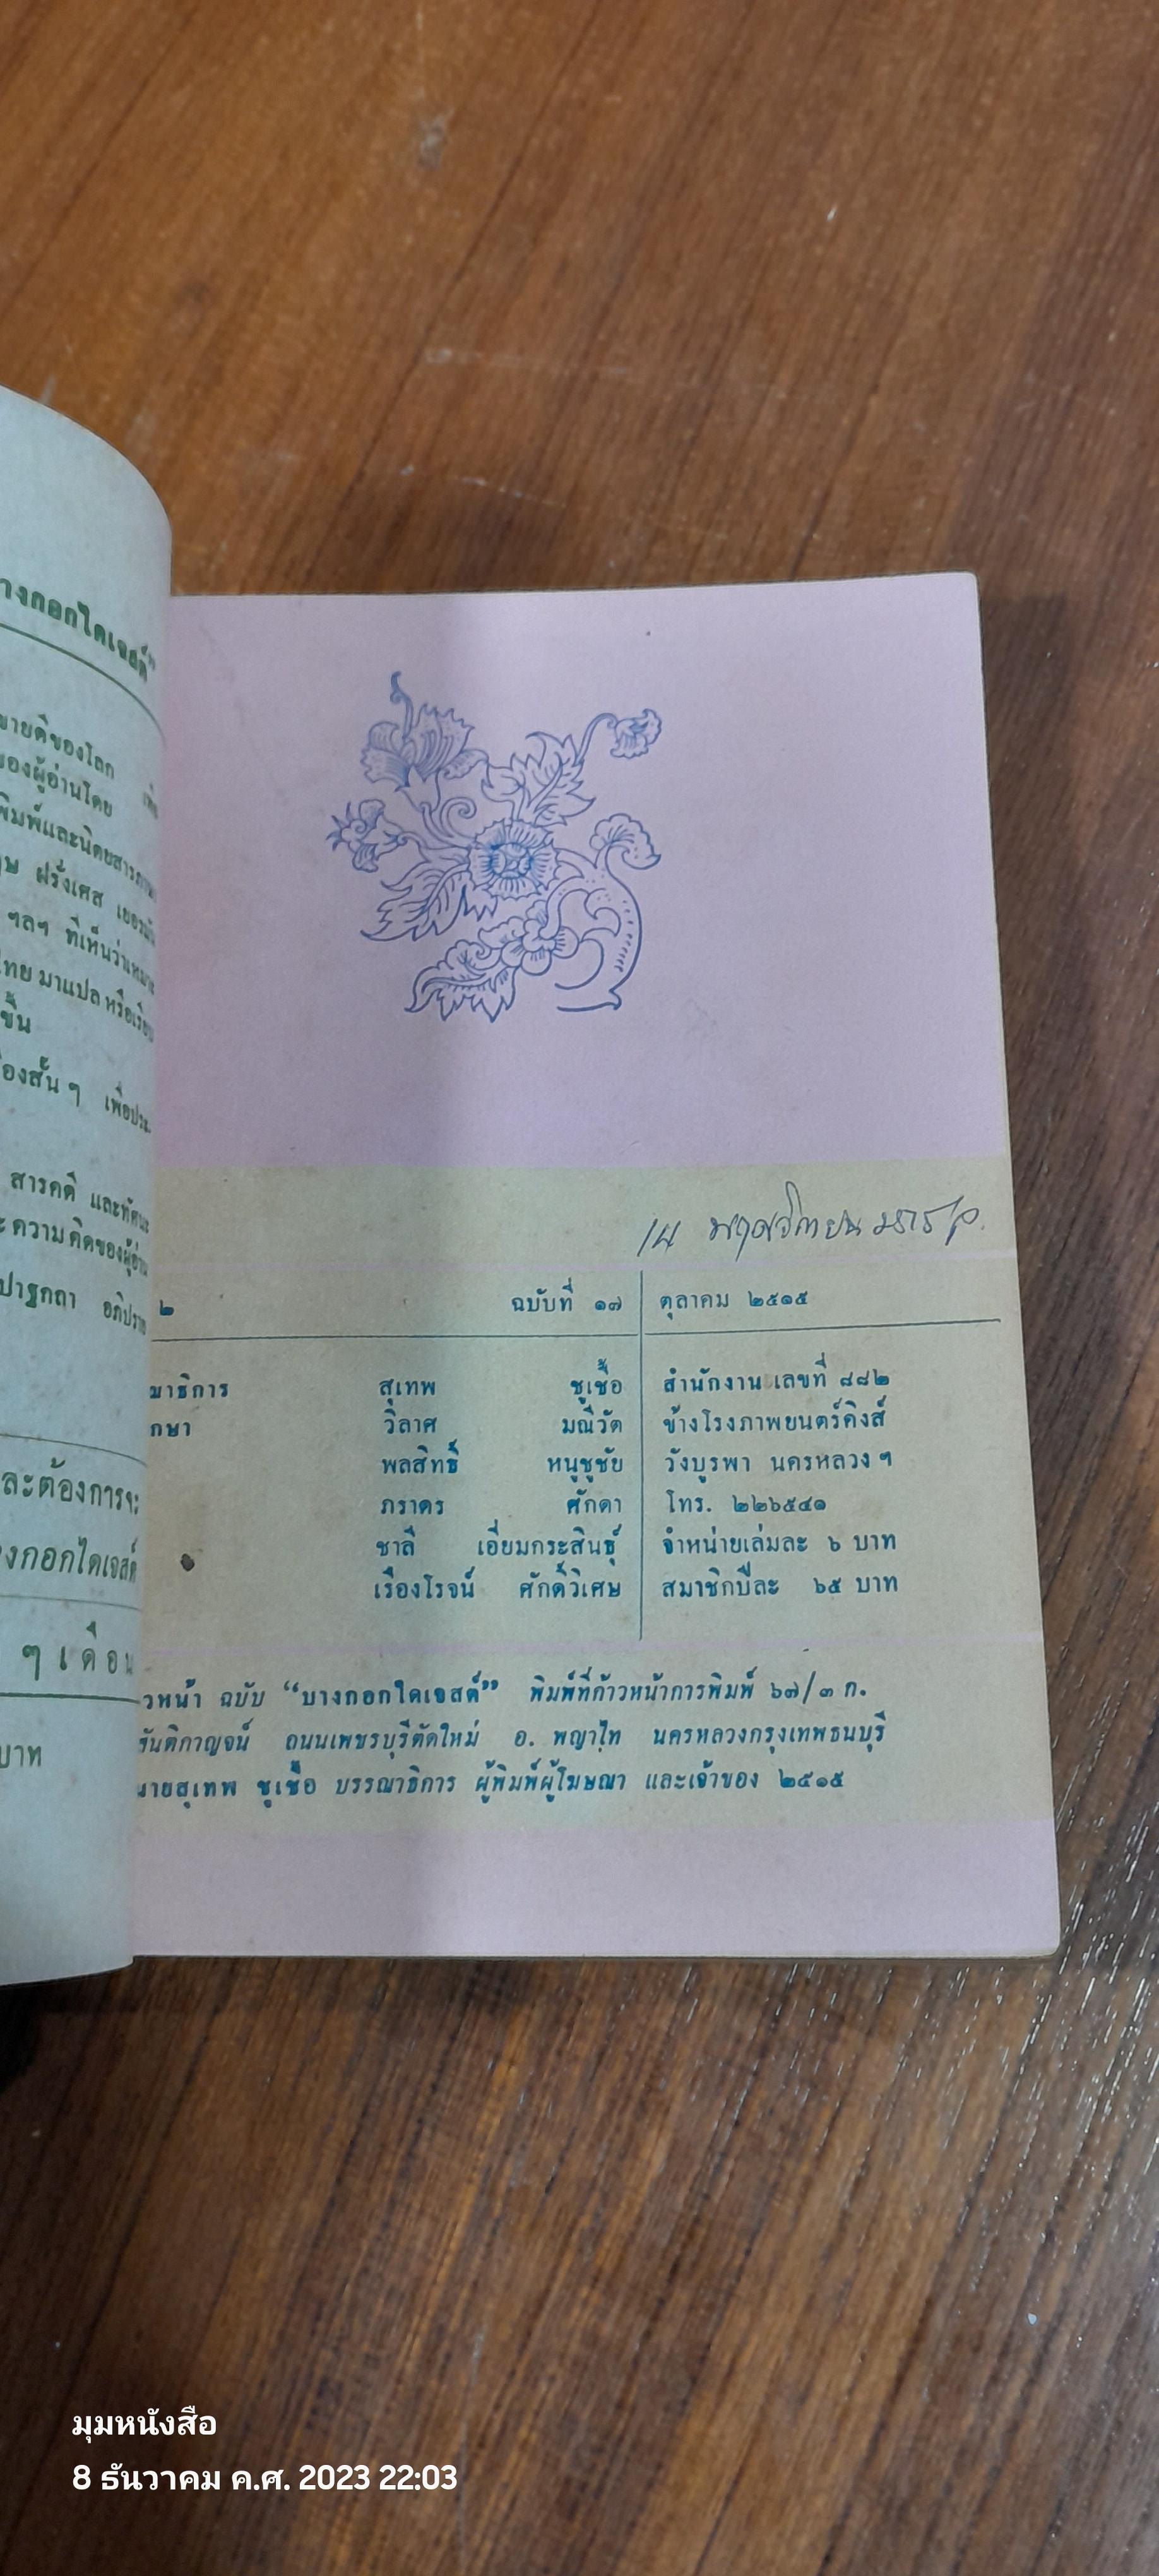 างกอกไดเจสต์”
ขายดีของโลก
ของผู้อ่านโดย
พิมพ์และนิตยสารภาษา
ฝรั่งเศส เยอรมัน
ฯลฯ ที่เห็นว่าเหมาะ
ไทย มาแปล หรือเรียบ
ขึ้น
องสั้น ๆ เพื่อประ-
สารคดี และทัศนะ
ะ ความคิดของผู้อ่าน
ปาฐกถา อภิปราย
ละต้องการจะ
งกอกไดเจสต์
ๆ เดือน
บาท
๑๘ พฤศจิกายน
๒ ฉบับที่ ๑๗ ตุลาคม ๒๕๑๕
มาธิการ สุเทพ ชูเชื้อ สำนักงาน เลขที่ ๘๘๒
กษา วิลาศ มณีวัต ข้างโรงภาพยนตร์คิงส์
พลสิทธิ์ หนูชูชัย วังบูรพา นครหลวง ฯ
ภราดร ศักดา โทร. ๒๒๖๕๔๑
ชาลี เอี่ยมกระสินธุ์ จำหน่ายเล่มละ ๖ บาท
เรืองโรจน์ ศักดิ์วิเศษ สมาชิกปีละ ๖๕ บาท
วหน้า ฉบับ “บางกอกไดเจสต์” พิมพ์ที่ก้าวหน้าการพิมพ์ ๖๗/๓ ก.
สันติกาญจน์ ถนนเพชรบุรีตัดใหม่ อ. พญาไท นครหลวงกรุงเทพธนบุรี
นายสุเทพ ชูเชื้อ บรรณาธิการ ผู้พิมพ์ผู้โฆษณา และเจ้าของ ๒๕๑๕
มุมหนังสือ
8 ธันวาคม ค.ศ. 2023 22:03